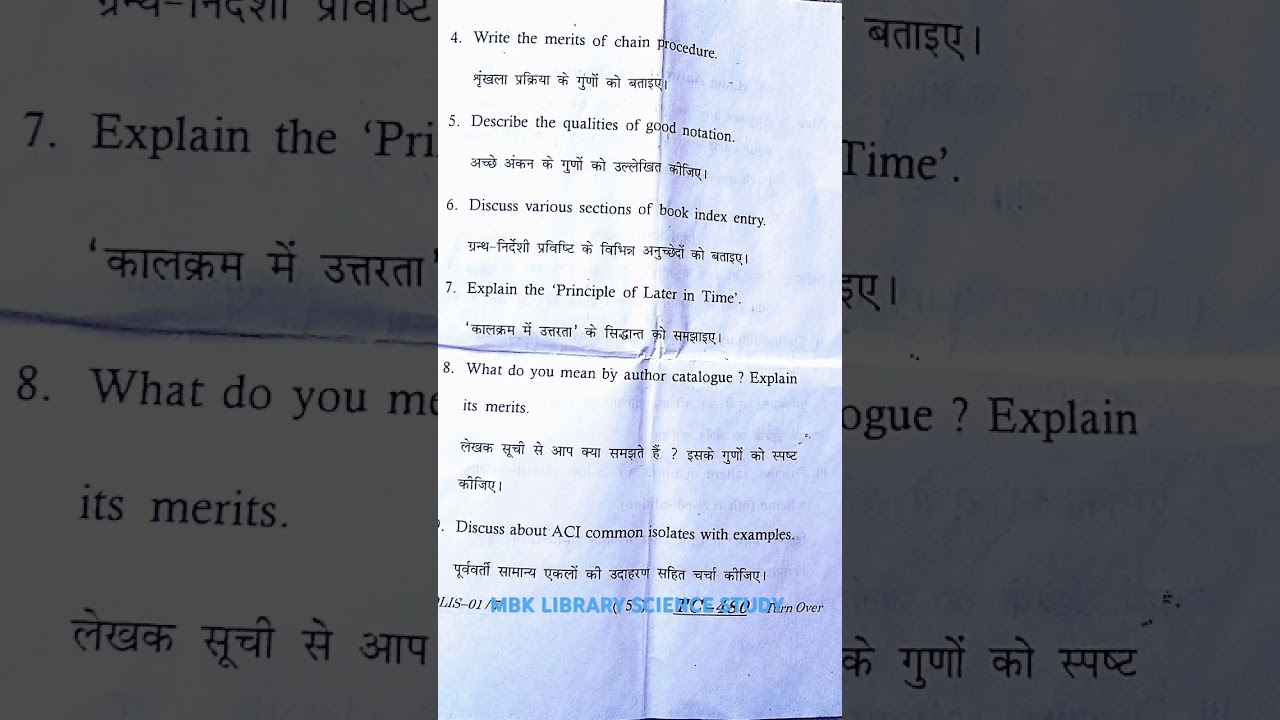 4. Write the merits of chain procedure.
शृंखला प्रक्रिया के गुणों को बताइए।
5. Describe the qualities of good notation.
अच्छे अंकन के गुणों को उल्लेखित कीजिए।
6. Discuss various sections of book index entry.
ग्रन्थ-निर्देशी प्रविष्टि के विभिन्न अनुच्छेदों को बताइए।
7. Explain the ‘Principle of Later in Time’.
‘कालक्रम में उत्तरता’ के सिद्धान्त को समझाइए।
8. What do you mean by author catalogue ? Explain
its merits.
लेखक सूची से आप क्या समझते हैं ? इसके गुणों को स्पष्ट
कीजिए।
. Discuss about ACI common isolates with examples.
पूर्ववर्ती सामान्य एकलों की उदाहरण सहित चर्चा कीजिए।
LIS–01 / ( 5 ) TC–480 Turn Over
MBK LIBRARY SCIENCE STUDY
ग्रन्थ-निर्देशी प्रविष्टि
बताइए।
7. Explain the ‘Pri
Time’.
‘कालक्रम में उत्तरता’
इए।
8. What do you me
ogue ? Explain
its merits.
लेखक सूची से आप
के गुणों को स्पष्ट